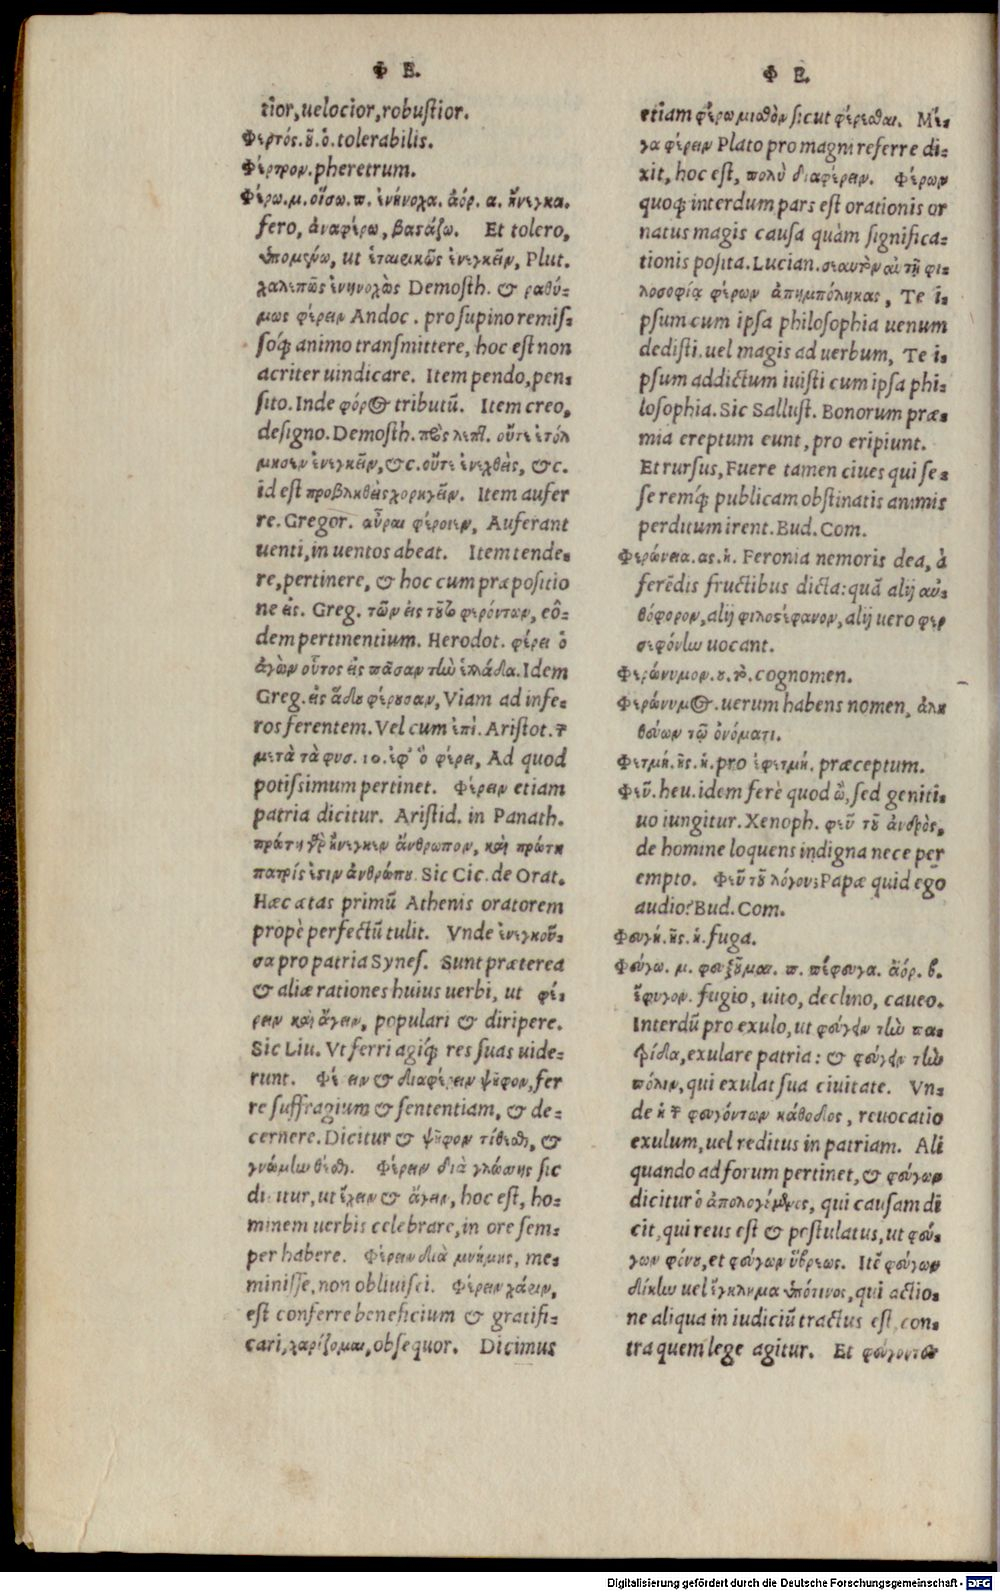 Φ Ε.
tior, uelocior, robustior.
Φερτός. οῦ. ὁ. tolerabilis.
Φέρτρον. pheretrum.
Φέρω. μ. οἴσω. π. ἐνήνοχα. ἀόρ. α. ἤνεγκα.
fero, ἀναφέρω, βαστάζω. Et tolero,
ὑπομένω, ut ἐνεγκεῖν, Plut.
χαλεπῶς ἐνηνοχὼς Demosth. & ραθύ-
μως φέρειν Andoc. pro supino remis-
soq́; animo transmittere, hoc est non
acriter uindicare. Item pendo, pen-
sito. Inde φόρος tributū. Item creo,
designo. Demosth. οὔτε ἐτόλ
μησεν ἐνεγκεῖν, &c. οὔτε ἐνεχθεὶς, &c.
id est προβληθεὶς χορηγεῖν. Item aufer
re. Gregor. αὖραι φέροιεν, Auferant
uenti, in uentos abeat. Item tende-
re, pertinere, & hoc cum præpositio
ne εἰς. Greg. τῶν εἰς τοῦτο φερόντων, eô-
dem pertinentium. Herodot. φέρει ὁ
ἀγὼν οὗτος εἰς πᾶσαν τὴν ἑλλάδα. Idem
Greg. εἰς ᾅδου φέρουσαν, Viam ad infe-
ros ferentem. Vel cum ἐπί. Aristot. τ
μετὰ τὰ φυσ. 10. ἐφ' ὃ φέρει, Ad quod
potissimum pertinet. Φέρειν etiam
patria dicitur. Aristid. in Panath.
πρώτη γὰρ ἤνεγκεν ἄνθρωπον, καὶ πρώτη
πατρίς ἐστιν ἀνθρώπου. Sic Cic. de Orat.
Hæc ætas primū Athenis oratorem
propè perfectū tulit. Vnde ἐνεγκοῦ-
σα pro patria Synes. Sunt præterea
& aliæ rationes huius uerbi, ut φέ-
ρειν καὶ ἄγειν, populari & diripere.
Sic Liu. Vt ferri agiq́; res suas uide-
runt. Φέρειν & διαφέρειν ψῆφον, fer
re suffragium & sententiam, & de-
cernere. Dicitur & ψῆφον τίθεσθαι, &
γνώμην θέσθαι. Φέρειν διὰ γλώττης sic
dicitur, ut ἔχειν & ἄγειν, hoc est, ho-
minem uerbis celebrare, in ore sem-
per habere. Φέρειν διὰ μνήμης, me-
minisse, non obliuisci. Φέρειν χάριν,
est conferre beneficium & gratifi-
cari, χαρίζομαι, obsequor. Dicimus
Φ Ε.
etiam φέρω μισθὸν sicut φέρεσθαι. Μέ-
γα φέρειν Plato pro magni referre di-
xit, hoc est, πολὺ διαφέρειν. Φέρων
quoq; interdum pars est orationis or
natus magis causa quàm significa-
tionis posita. Lucian. σεαυτὸν αὐτῇ φι-
λοσοφίᾳ φέρων ἀπημπόληκας, Te i-
psum cum ipsa philosophia uenum
dedisti. uel magis ad uerbum, Te i-
psum addictum iuisti cum ipsa phi-
losophia. Sic Sallust. Bonorum præ-
mia ereptum eunt, pro eripiunt.
Et rursus, Fuere tamen ciues qui se-
se remq́; publicam obstinatis animis
perditum irent. Bud. Com.
Φερώνεια. ας. ἡ. Feronia nemoris dea, à
ferēdis fructibus dicta: quā alij ἀν-
θόφορον, alij φιλοστέφανον, alij uero φερ
σεφόνην uocant.
Φερώνυμον. ου. τὸ. cognomen.
Φερώνυμος. uerum habens nomen, ἀλη
θεύων τῷ ὀνόματι.
Φετμή. ῆς. ἡ. pro ἐφετμή. præceptum.
Φεῦ. heu. idem ferè quod ὢ, sed geniti-
uo iungitur. Xenoph. φεῦ τοῦ ἀνδρὸς,
de homine loquens indigna nece per
empto. Φεῦ τοῦ λόγου; Papæ quid ego
audio? Bud. Com.
Φευγή. ῆς. ἡ. fuga.
Φεύγω. μ. φευξοῦμαι. π. πέφευγα. ἀόρ. β.
ἔφυγον. fugio, uito, declino, caueo.
Interdū pro exulo, ut φεύγειν τὴν πα-
τρίδα, exulare patria: & φεύγειν τὴν
πόλιν, qui exulat sua ciuitate. Vn-
de ἡ τ φευγόντων κάθοδος, reuocatio
exulum, uel reditus in patriam. Ali
quando ad forum pertinet, & φεύγων
dicitur ὁ ἀπολογούμενος, qui causam di
cit, qui reus est & postulatus, ut φεύ-
γων φόνου, et φεύγων ὕβρεως. Itē φεύγων
δίκην uel ἔγκλημα ὑπότινος, qui actio-
ne aliqua in iudiciū tractus est, con-
tra quem lege agitur. Et φεύγοντος
Digitalisierung gefördert durch die Deutsche Forschungsgemeinschaft - DFG